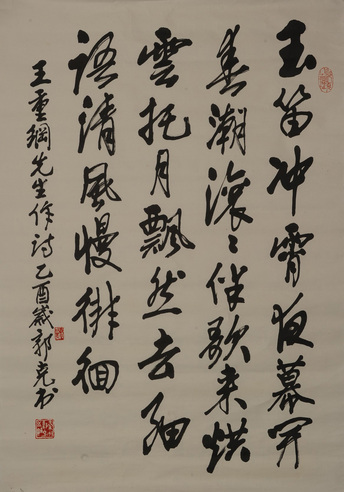 玉笛冲霄夜幕开
春潮滚滚伴歌来烘
云托月飘然去细
语清风慢徘徊
王重纲先生作诗乙酉岁郭尧书